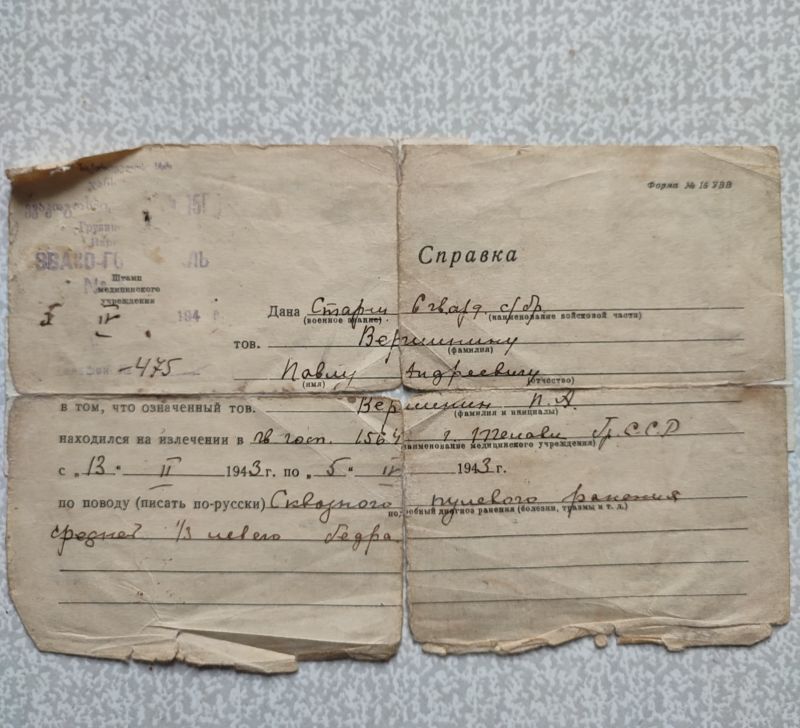 Форма № 16 УВВ
Справка
№
Штамп
медицинского
учреждения
194
475
Дана Старш 6 гвард. с/бр.
(военное звание) (наименование войсковой части)
тов. Вершинину
(фамилия)
Павлу Андреевичу
(имя) (отчество)
в том, что означенный тов. Вершинин П. А.
(фамилия и инициалы)
находился на излечении в эв госп. 1564 г. Телави Гр. ССР
(наименование медицинского учреждения)
с „13“ II 1943 г. по „5“ IV 1943 г.
по поводу (писать по-русски) Сквозного пулевого ранения
подробный диагноз ранения (болезни, травмы и т. д.)
средней 1/3 левого бедра